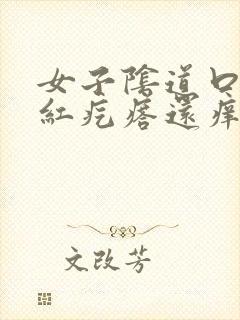 女子陰道口
紅疙瘩還痒
文改芳